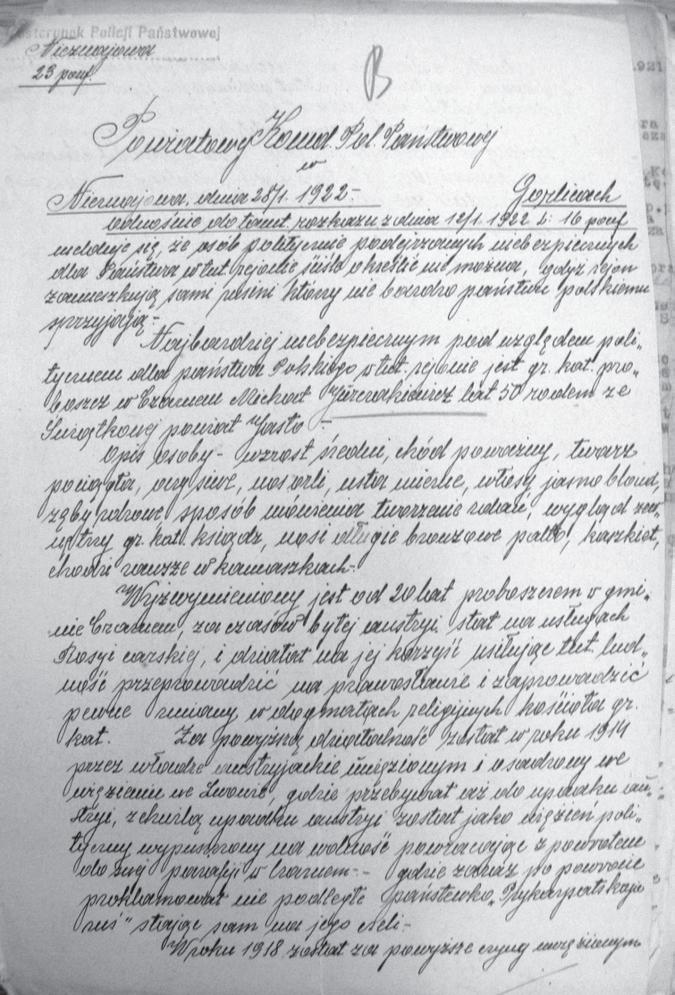 Posterunek Policji Państwowej
Nieznajowa
23 pouf.
B
Powiatowy Komd. Pol. Państwowej
w
Nieznajowa, dnia 28/1. 1922.- Gorlicach
Odnośnie do tamt. rozkazu z dnia 12/1. 1922 L: 16 pouf
melduje się, że osób politycznie podejrzanych niebezpiecznych
dla Państwa w tut. rejonie ściśle określić nie można, gdyż rejon
zamieszkują sami rusini którzy nie bardzo państwu polskiemu
sprzyjają.-
Najbardziej niebezpiecznym pod względem poli-
tycznem dla państwa Polskiego w tut. rejonie jest gr. kat. pro-
boszcz w Czarnem Michał Jurczakiewicz lat 50 rodem ze
Świątkowej powiat Jasło -
Opis osoby- wzrost średni, chód poważny, twarz
pociągła, oczy siwe, nos orli, usta mierne, włosy jasno blond,
zęby zdrowe sposób mówienia tworzenie zdań, wygląd zew-
nętrzny gr. kat. ksiądz, nosi długie bronzowe palto, kaszkiet,
chodzi zawsze w kamaszkach.
Wyzwymieniony jest od 20 lat proboszczem w gmi-
nie Czarnem, za czasów byłej austryi stał na usługach
Rosyi carskiej, i działał na jej korzyść usiłując tut. lud-
ność przeprowadzić na prawosławie i zaprowadzić
pewne zmiany w dogmatach religijnych kościoła gr.
kat. Za powyższą działalność został w roku 1914
przez władze austryjackie uwięzionym i osadzony we
więzieniu we Lwowie, gdzie przebywał aż do upadku au-
stryi, z chwilą upadku austryi został jako więzień poli-
tyczny wypuszczony na wolność powracając z powrotem
do swej parafji w Czarnem-- gdzie zaraz po powrocie
proklamował nie podległe państewko "Prykarpatskaja
ruś" stając sam na jego czeli-
W roku 1918 został za powyższe czyny uwięzionym